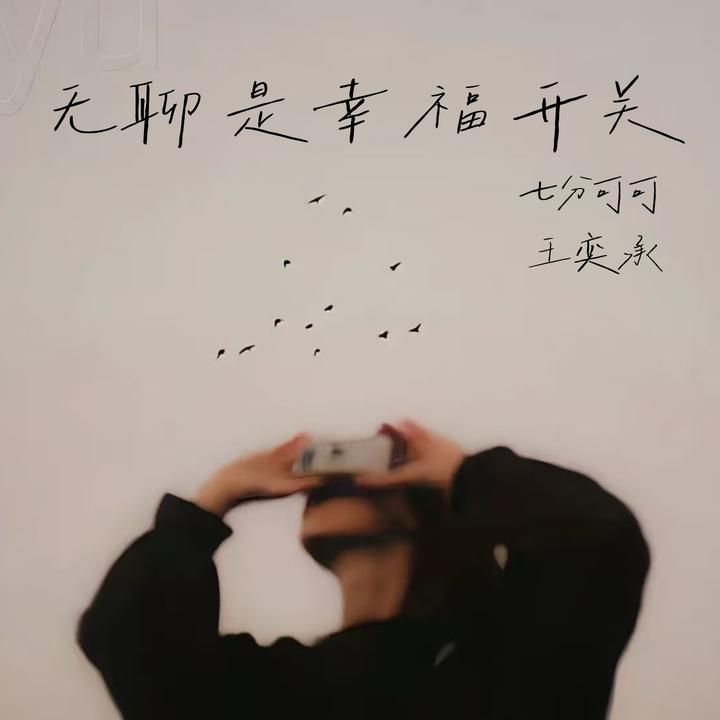 yu
无聊是幸福开关
七分可可
王奕承